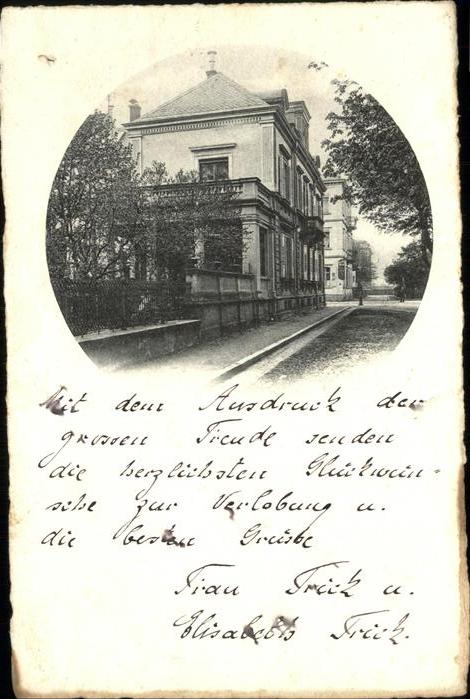 Mit dem Ausdruck der
grossen Freude senden
die herzlichsten Glückwün-
sche zur Verlobung u.
die besten Grüsse
Frau Frick u.
Elisabeth Frick.